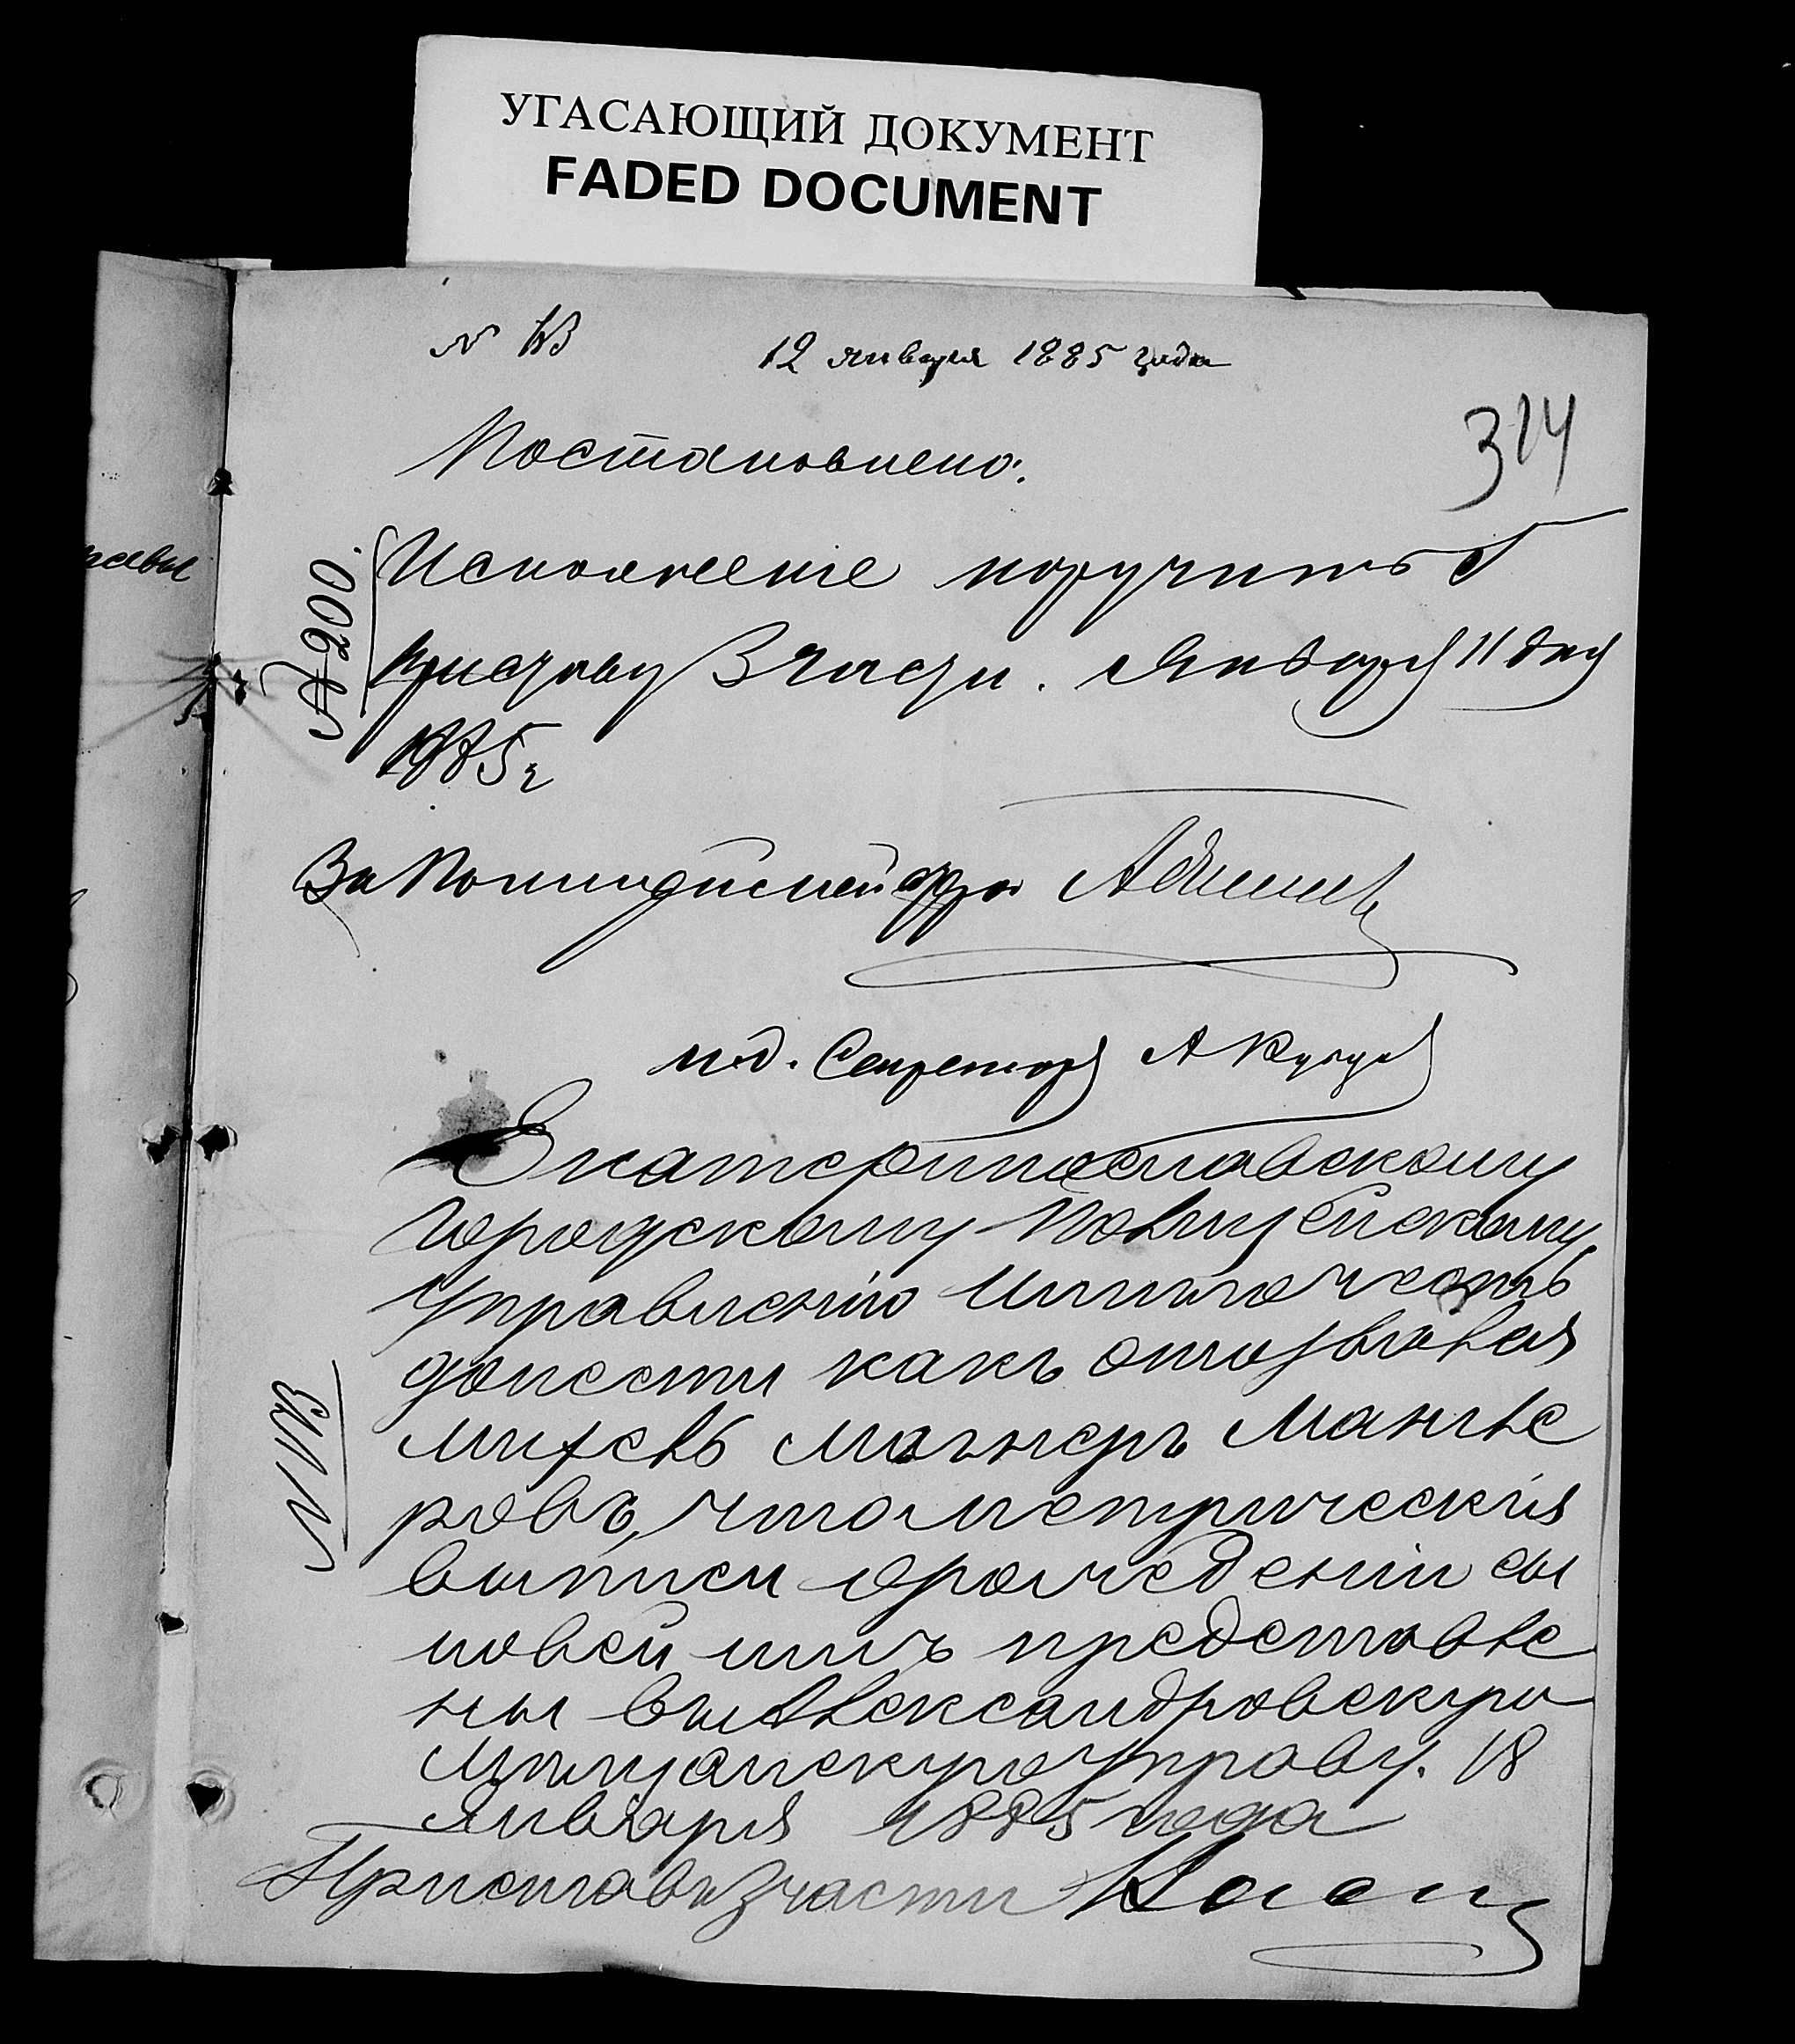 УГАСАЮЩИЙ ДОКУМЕНТ
FADED DOCUMENT
12 января 1885 года
314
Постановлено:
№ 200.
Исполненіе поручить Г
приставу 3 части. Января 11 дня
1885 г
За Полицiймейстера
и.д. Секретаря А
Екатеринославскому
Городскому Полицейскому
Управленію имѣю честь
донести какъ отозвался
Мангеръ Манге
ровъ, что метрическія
выписи о рожденіи сы
новей имъ представле
ны въ Александровскую
Мѣщанскую управу. 18
Января 1885 года
Приставъ 3 части